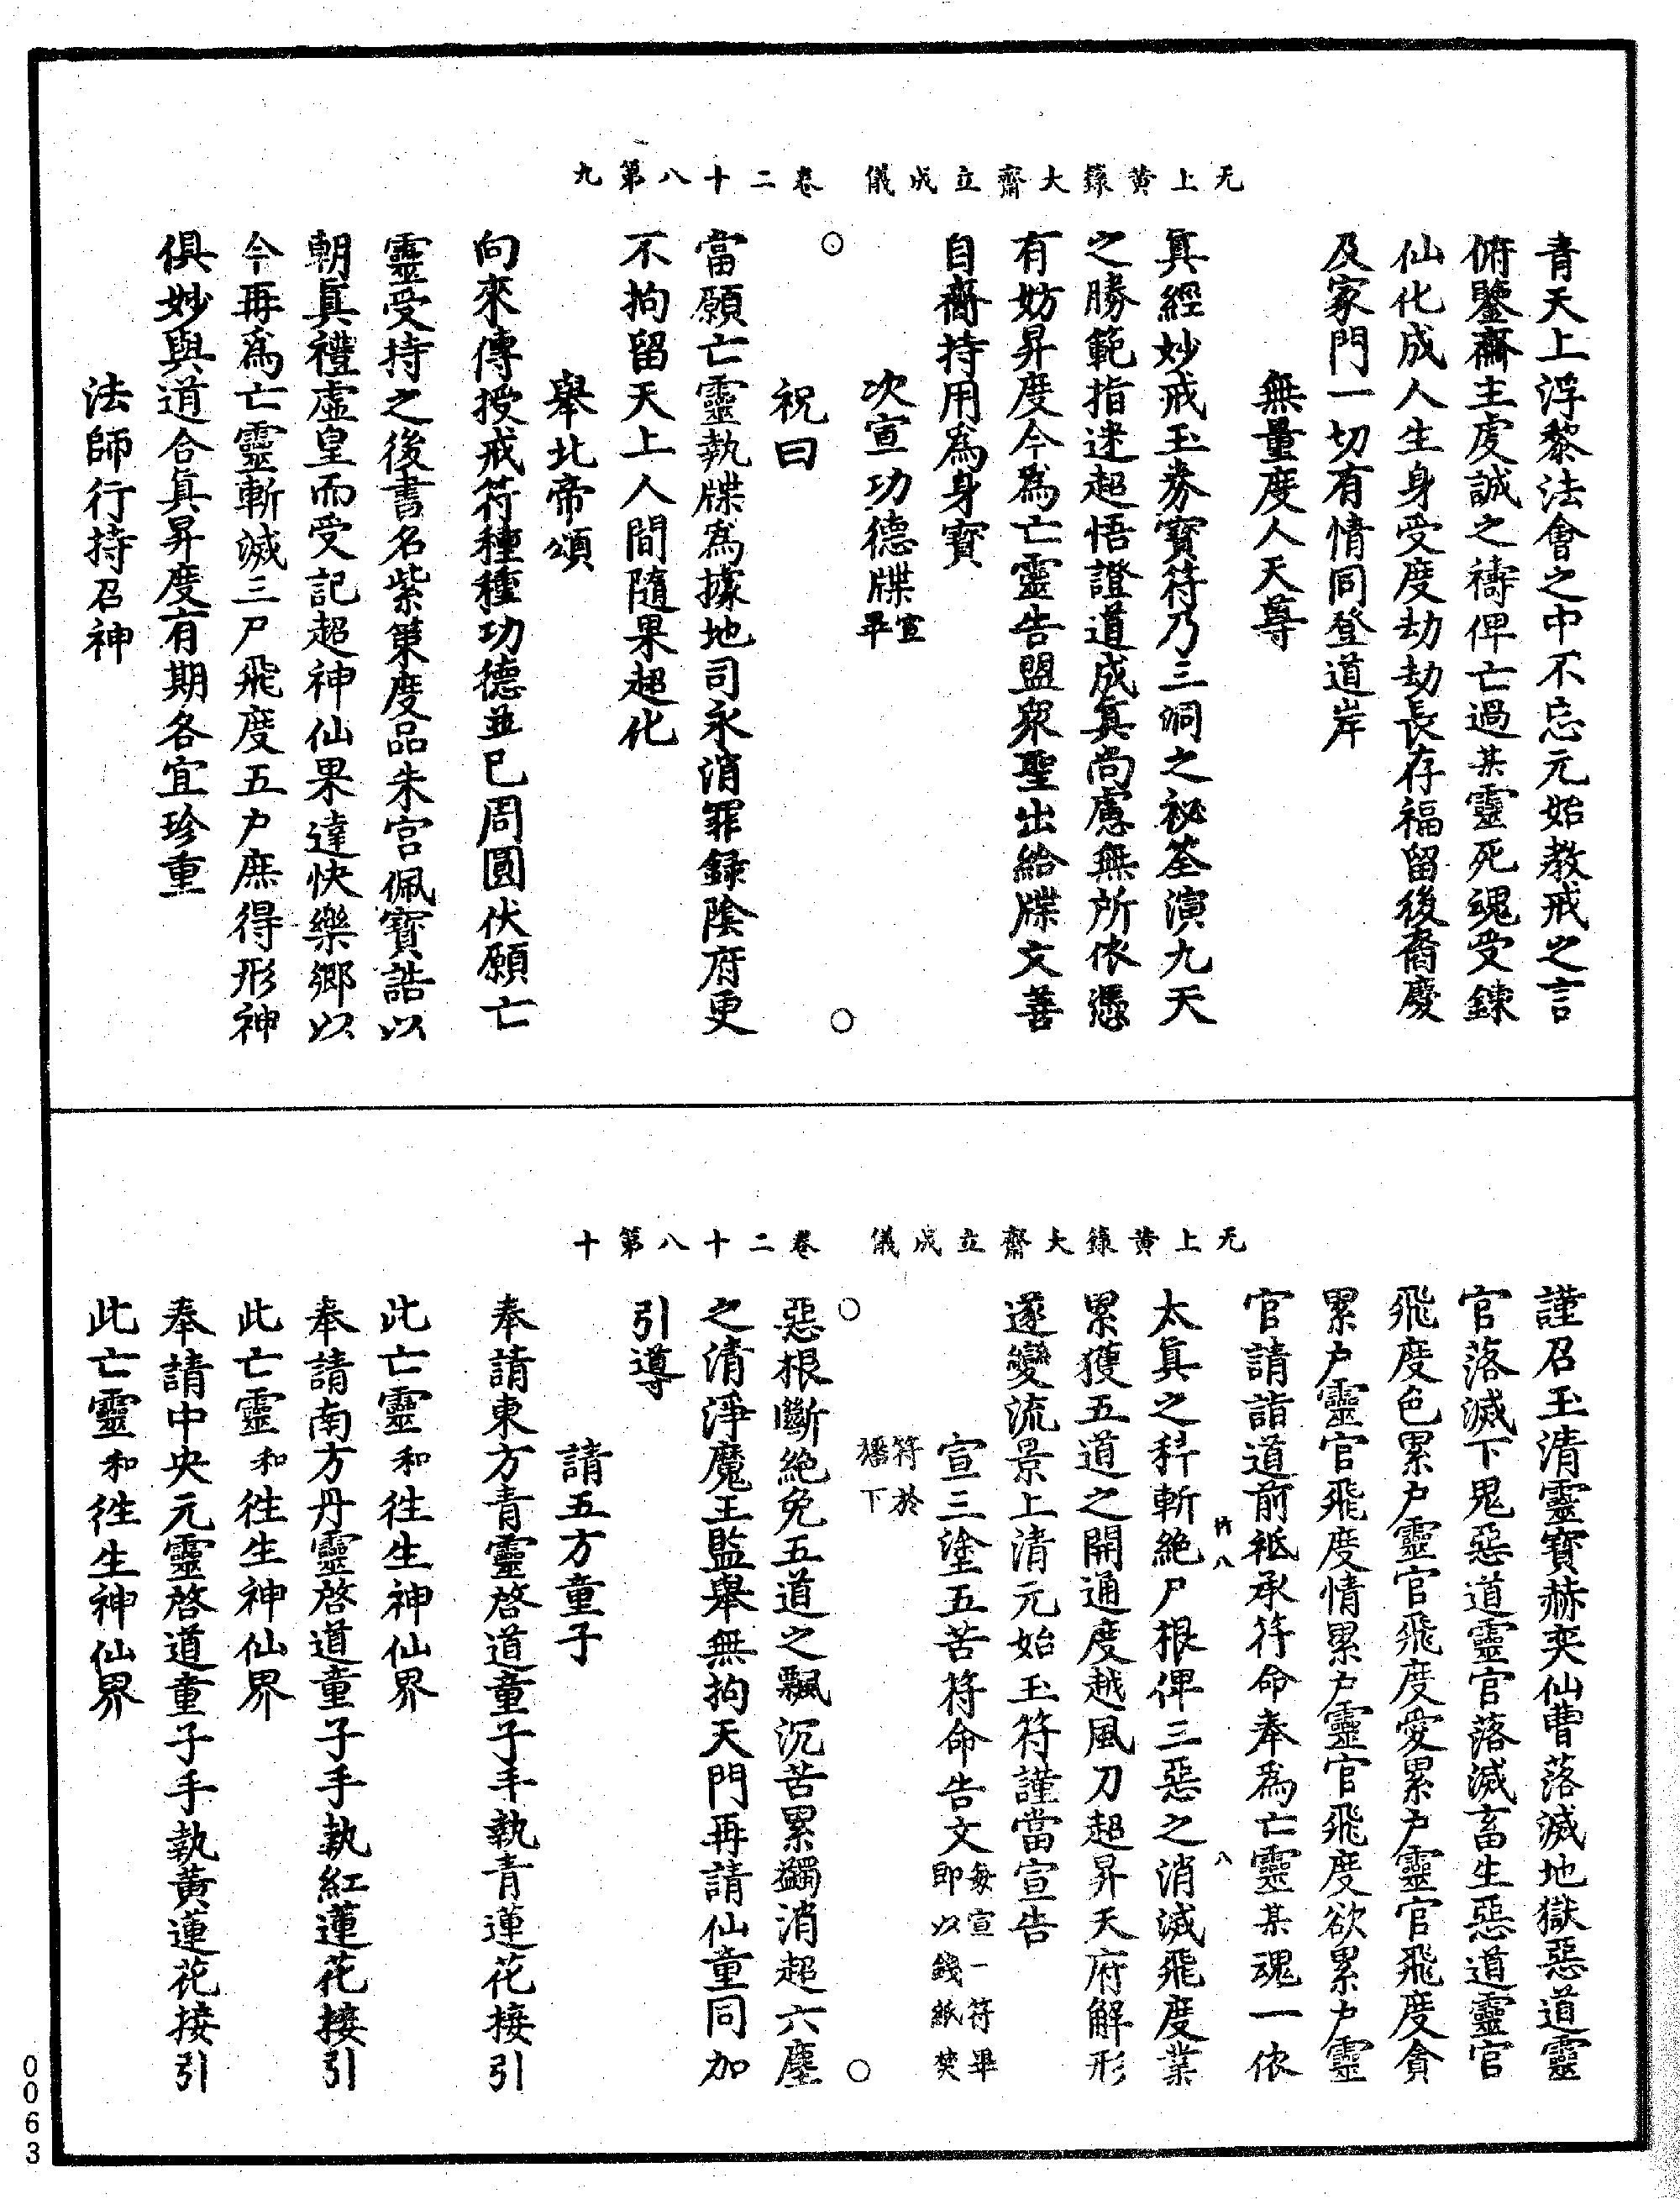 无上黃籙大齋立成儀　卷二十八第九
青天上浮黎法會之中不忘元始教戒之言
俯鑒齋主虔誠之禱俾亡過某靈死魂受鍊
仙化成人生身受度劫劫長存福留後裔慶
及家門一切有情同登道岸
無量度人天尊
真經妙戒玉券寶符乃三洞之祕筌演九天
之勝範指迷超悟證道成真尚慮無所依憑
有妨昇度今為亡靈告盟眾聖出給牒文善
自齎持用為身寶
次宣功德牒宣畢
祝曰
當願亡靈執牒為據地司永消罪錄陰府更
不拘留天上人間隨果超化
舉北帝頌
向來傳授戒符種種功德並已周圓伏願亡
靈受持之後書名紫策度品朱宮佩寶誥以
朝真禮虛皇而受記超神仙果達快樂鄉以
今再為亡靈斬滅三尸飛度五户庶得形神
俱妙與道合真昇度有期各宜珍重
法師行持召神
无上黃籙大齋立成儀　卷二十八第十
謹召玉清靈寶赫奕仙曹落滅地獄惡道靈
官落滅下鬼惡道靈官落滅畜生惡道靈官
飛度色累户靈官飛度愛累户靈官飛度貪
累户靈官飛度情累户靈官飛度欲累户靈
官請詣道前祗承符命奉為亡靈某魂一依
太真之科斬絕尸根俾三惡之消滅飛度業
累獲五道之開通度越風刀超昇天府解形
遂變流景上清元始玉符謹當宣告
宣三塗五苦符命告文每宣一符畢即以錢紙焚
符於燔下
惡根斷絕免五道之飄沉苦累蠲消超六塵
之清淨魔王監舉無拘天門再請仙童同加
引導
請五方童子
奉請東方青靈啓道童子手執青蓮花接引
此亡靈和往生神仙界
奉請南方丹靈啓道童子手執紅蓮花接引
此亡靈和往生神仙界
奉請中央元靈啓道童子手執黃蓮花接引
此亡靈和往生神仙界
0063